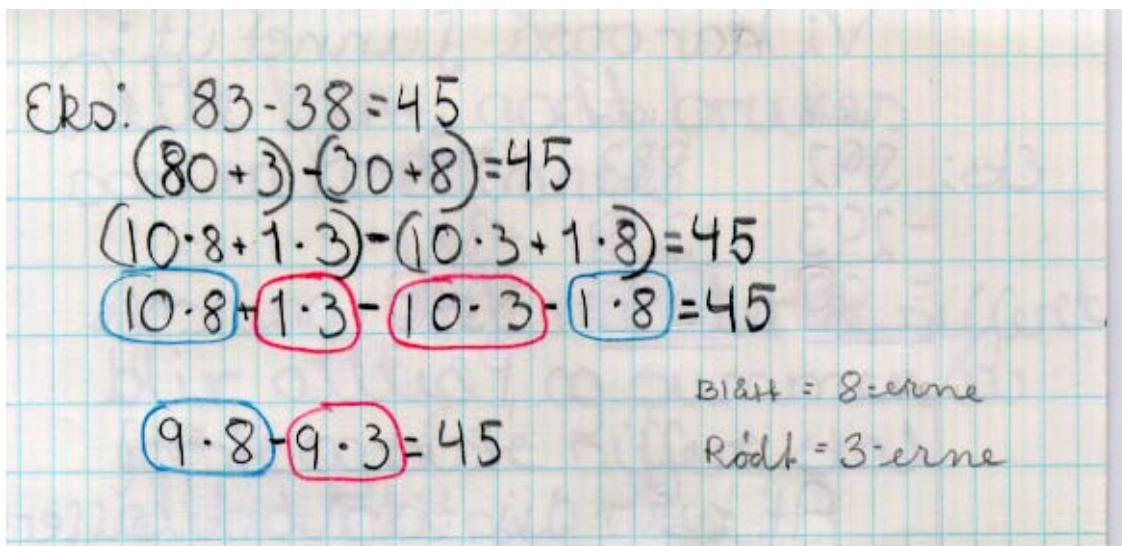 Eks: 83-38=45
(80+3)-(30+8)=45
(10·8+1·3)-(10·3+1·8)=45
10·8+1·3-10·3-1·8=45
Blått = 8-erne
9·8-9·3=45
Rødt = 3-erne